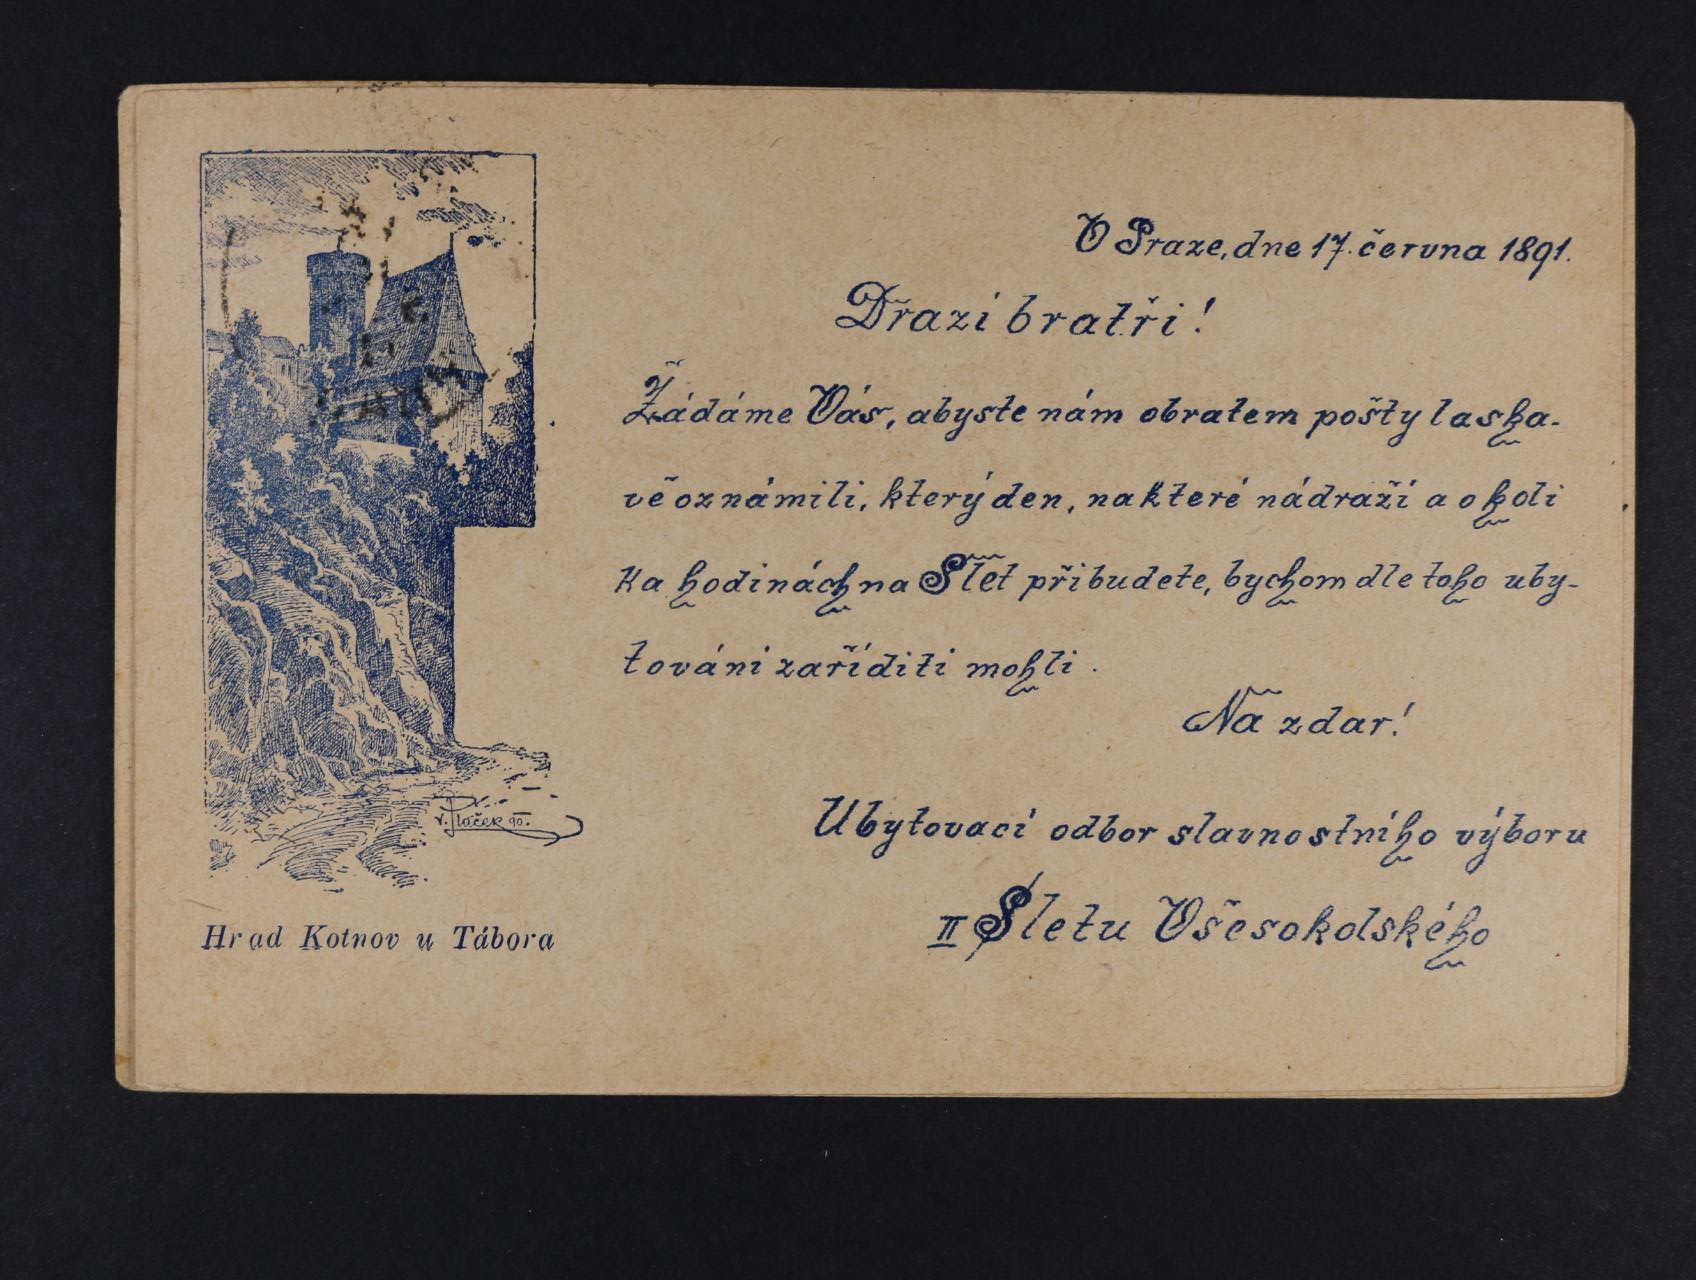 V Praze, dne 17. června 1891.
Drazí bratři!
Žádáme Vás, abyste nám obratem pošty laska-
vě oznámili, který den, na které nádraží a o koli
ka hodinách na Slet přibudete, bychom dle toho uby-
továni zaříditi mohli.
Na zdar!
Ubytovací odbor slavnostního výboru
II Sletu Všesokolského
V. Ploček 90.
Hrad Kotnov u Tábora